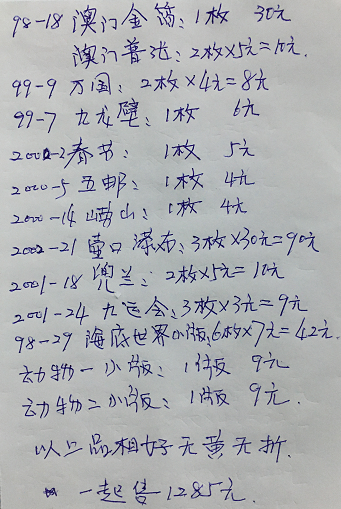 98-18 澳门金箔：1枚 30元
澳门普泥：2枚×5元=10元.
99-9 万国：2枚×4元=8元
99-7 九龙壁：1枚 6元
2000-2春节：1枚 5元
2000-5 五邮：1枚 4元
2000-14崂山：1枚 4元
2002-21 壶口瀑布：3枚×30元=90元
2001-18 兜兰：2枚×5元=10元
2001-24 九运会：3枚×3元=9元
98-29 海底世界小版：6枚×7元=42元.
动物一小版：1版 9元
动物二小版：1版 9元.
以上品相好无黄无折.
一起售1285元.